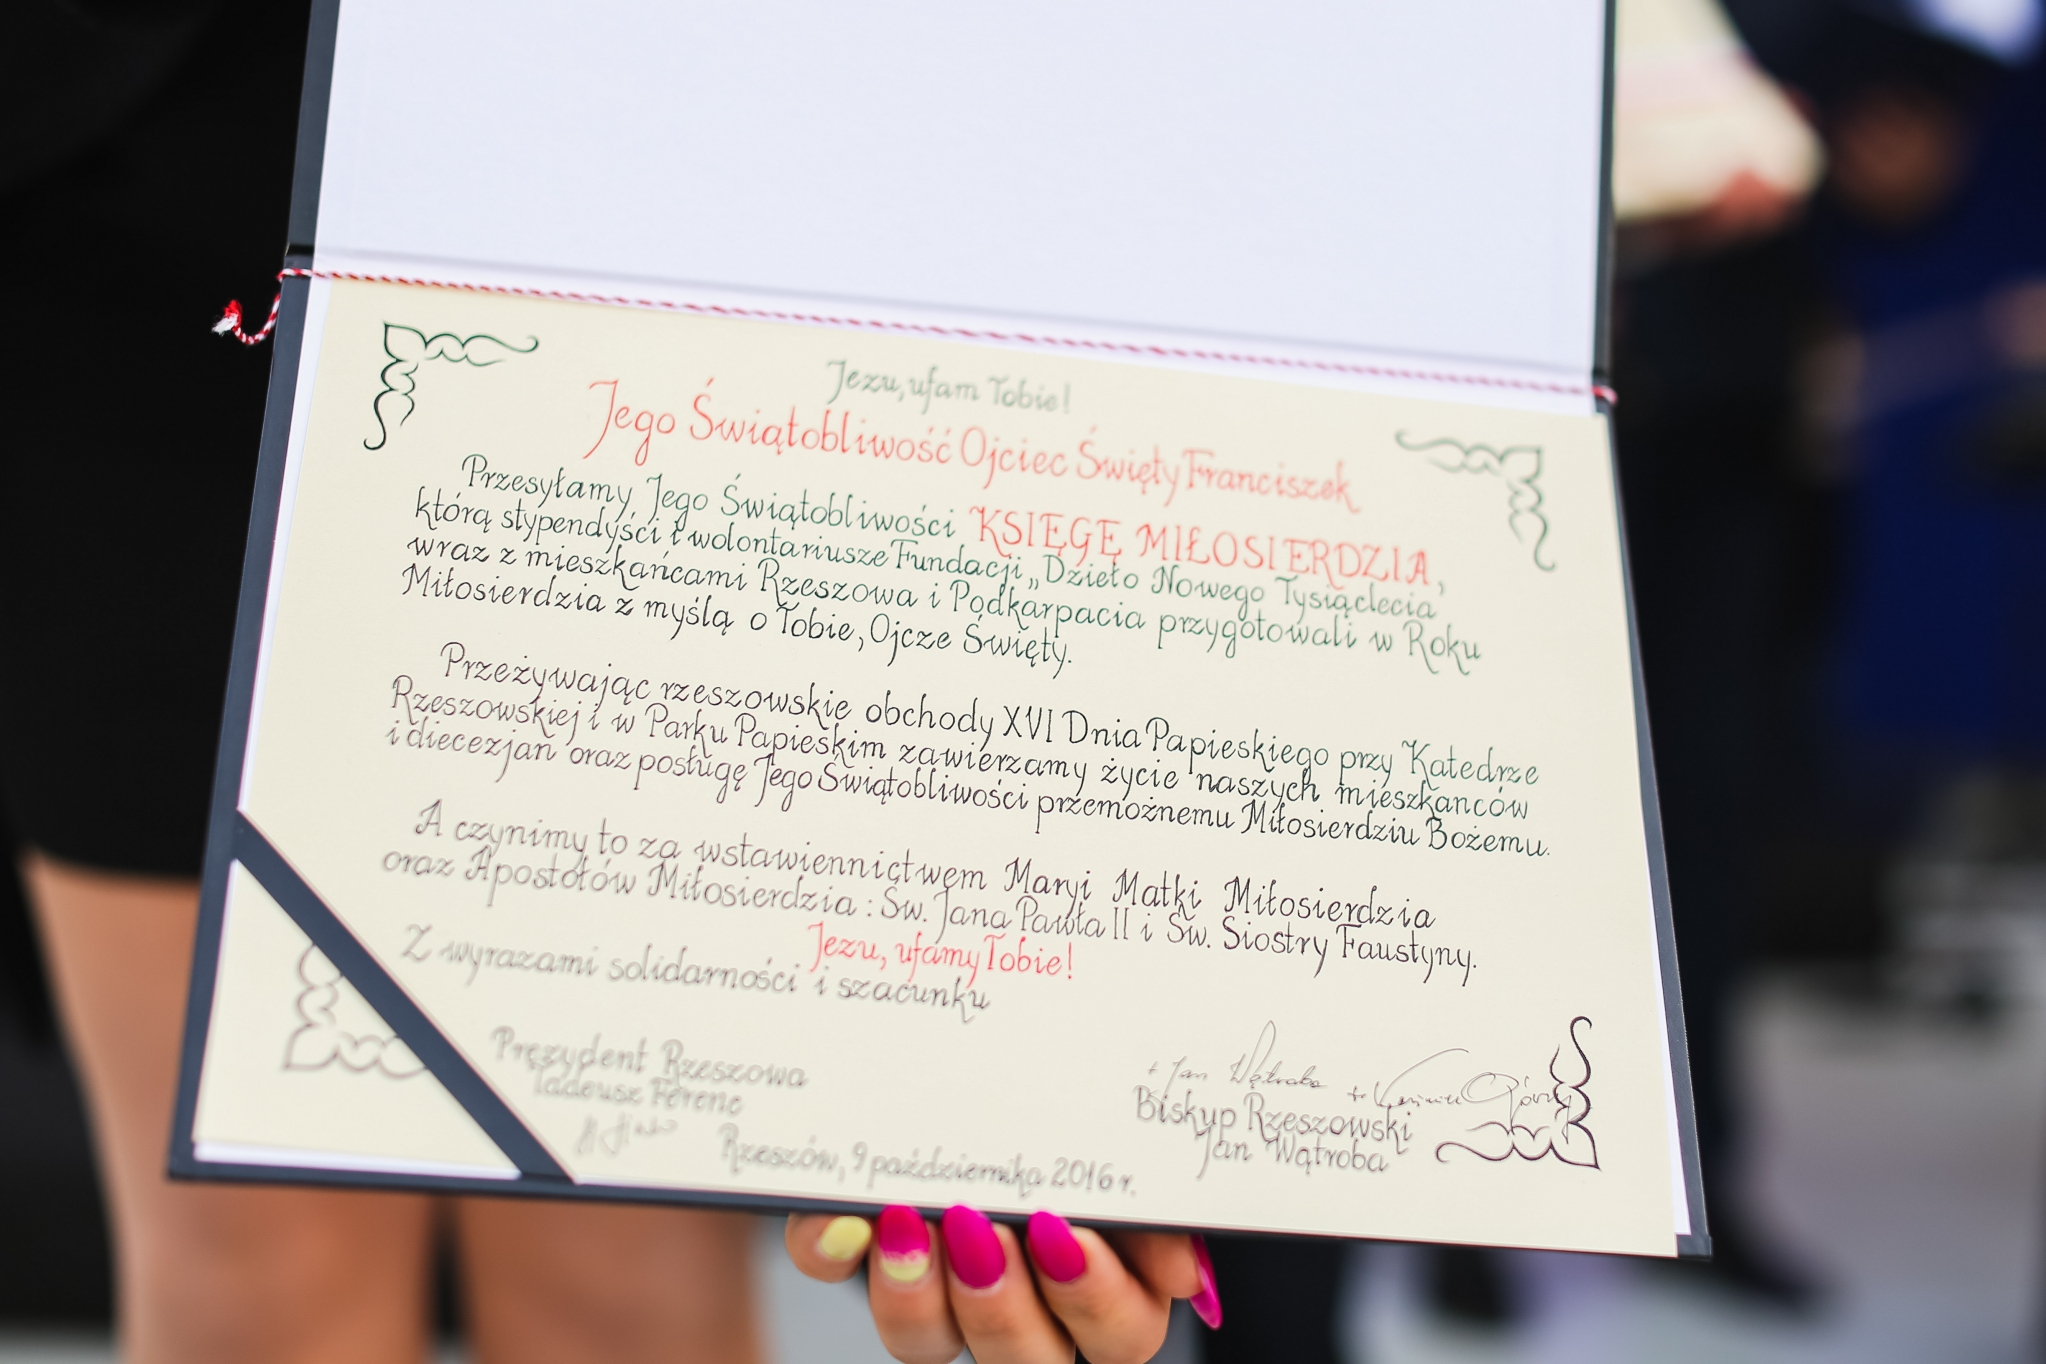 Jezu, ufam Tobie!
Jego Świątobliwość Ojciec Święty Franciszek
Przesyłamy Jego Świątobliwości KSIĘGĘ MIŁOSIERDZIA,
którą stypendyści i wolontariusze Fundacji „Dzieło Nowego Tysiąclecia”
wraz z mieszkańcami Rzeszowa i Podkarpacia przygotowali w Roku
Miłosierdzia z myślą o Tobie, Ojcze Święty.
Przeżywając rzeszowskie obchody XVI Dnia Papieskiego przy Katedrze
Rzeszowskiej i w Parku Papieskim zawierzamy życie naszych mieszkańców
i diecezjan oraz posługę Jego Świątobliwości przemożnemu Miłosierdziu Bożemu.
A czynimy to za wstawiennictwem Maryi Matki Miłosierdzia
oraz Apostołów Miłosierdzia: Św. Jana Pawła II i Św. Siostry Faustyny.
Jezu, ufamy Tobie!
Z wyrazami solidarności i szacunku
Prezydent Rzeszowa
Tadeusz Ferenc
+ Jan Wątroba + Kazimierz Górny
Biskup Rzeszowski
Jan Wątroba
Rzeszów, 9 października 2016 r.